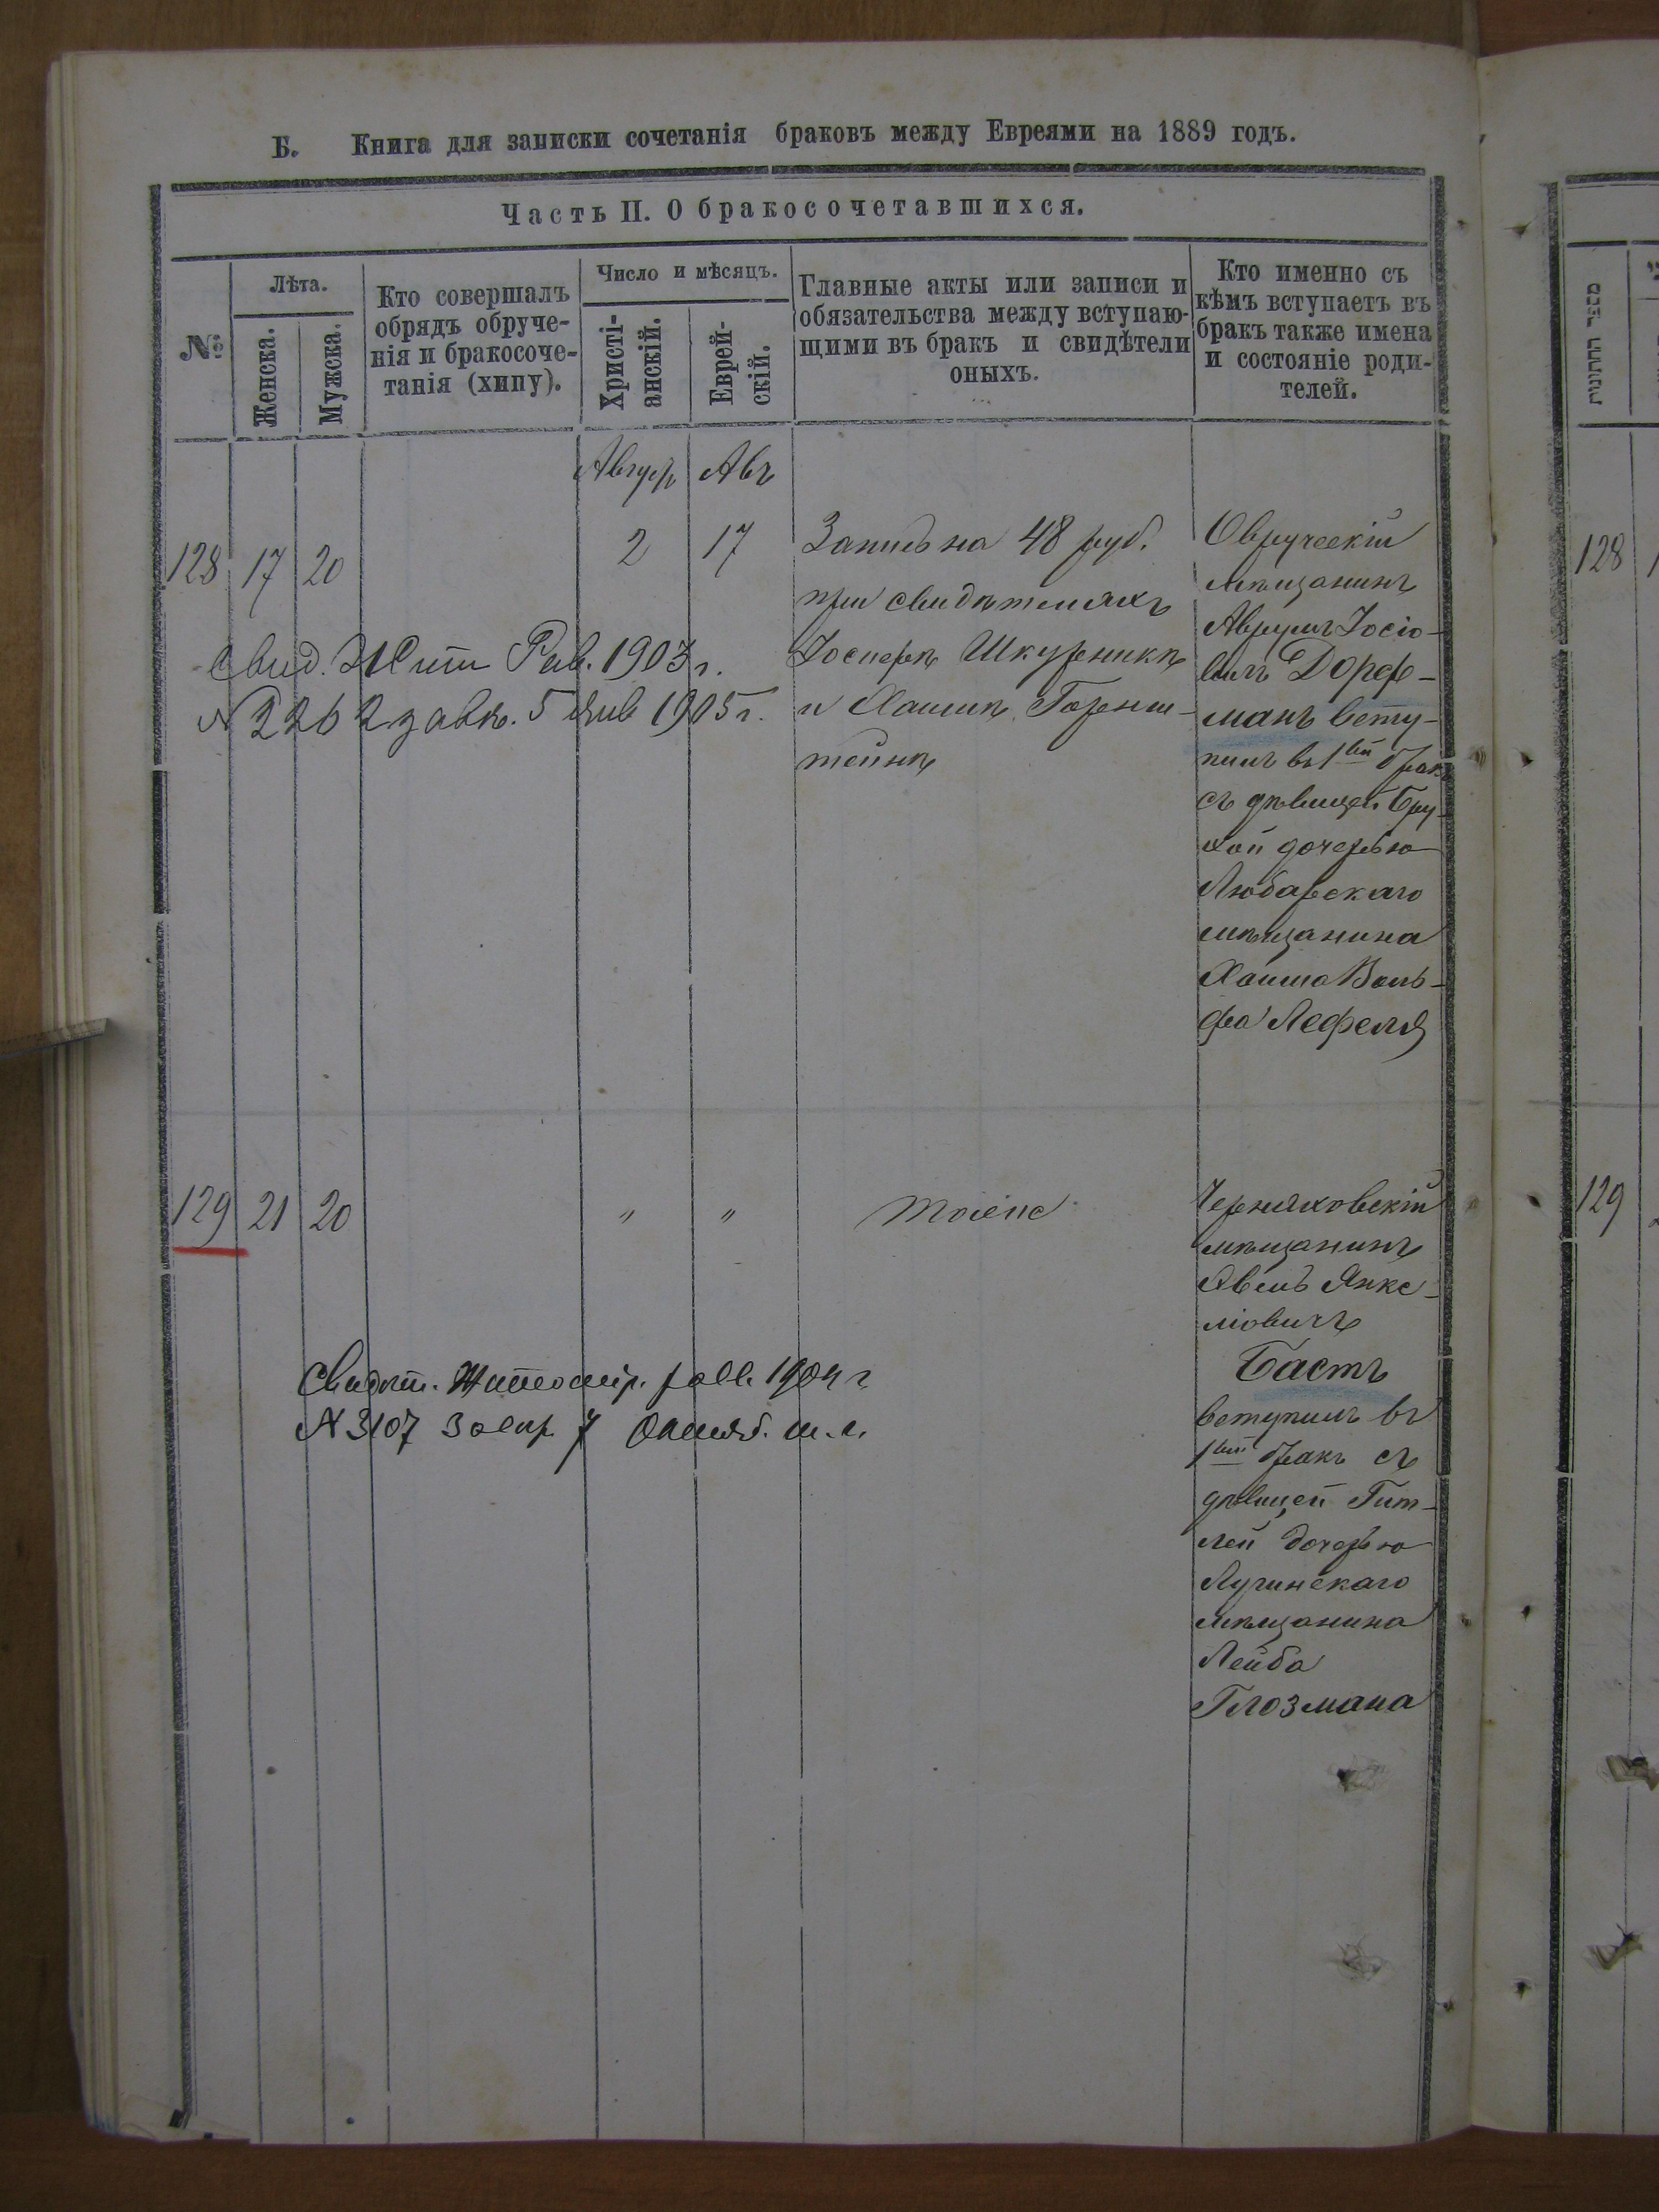 Б. Книга для записки сочетанія браковъ между Евреями на 1889 годъ.
Часть II. О бракосочетавшихся.
№
Лѣта.
Женска.
Мужска.
Кто совершалъ
обрядъ обруче-
нія и бракосоче-
танія (хипу).
Число и мѣсяцъ.
Христі-
анскій.
Еврей-
скій.
Главные акты или записи и
обязательства между вступаю-
щими въ бракъ и свидѣтели
оныхъ.
Кто именно съ
кѣмъ вступаетъ въ
бракъ также имена
и состояніе роди-
телей.
מספר החתונות
Август Авъ
128 17 20 2 17
Запись на 48 руб.
при свидѣтеляхъ
Иосифѣ Шкурникѣ
и Хаимѣ Горенш-
тейнѣ
Овручскій
мѣщанинъ
Аврумъ Іосіо-
вичъ Дорф-
манъ всту-
пилъ въ 1вый бракъ
съ дѣвицей Бру-
хой дочерью
Любарскаго
мѣщанина
Хаима Воль-
фа Лефеля
Свид. Жит Рав. 1903 г.
5 янв 1905 г.
128
129 21 20 " "
тоже
Черняховскій
мѣщанинъ
Авель Янке-
ліовичъ
Бастъ
вступилъ въ
1вый бракъ съ
дѣвицей Гит-
лей дочерью
Лугинскаго
мѣщанина
Лейба
Глозмана
Свидѣт. Житомір. равв. 1904 г
№ 3107 7 Октяб. т. г.
129